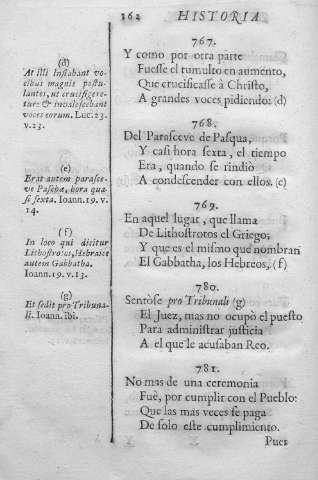 162 HISTORIA
767.
Y como por otra parte
Fuesse el tumulto en aumento,
Que crucificasse à Christo,
A grandes voces pidiendo: (d)
768.
Del Parasceve de Pasqua,
Y casi hora sexta, el tiempo
Era, quando se rindiò
A condescender con ellos. (e)
769.
En aquel lugar, que llama
De Lithostrotos el Griego;
Y que es el mismo que nombran
El Gabbatha, los Hebreos, (f)
780.
Sentòse pro Tribunali (g)
El Juez, mas no ocupò el puesto
Para administrar justicia
A el que le acusaban Reo.
781.
No mas de una ceremonia
Fuè, por cumplir con el Pueblo:
Que las mas veces se paga
De solo este cumplimiento.
Pues
(d)
At illi Instabant vo-
cibus magnis postu-
lantes, ut crucifigere-
tur: & invalescebant
voces eorum. Luc. 23.
v.23.
(e)
Erat autem parasce-
ve Paschæ, hora qua-
si sexta. Ioann. 19. v.
14.
(f)
In loco qui dicitur
Lithostrotus, Hebraice
autem Gabbatha.
Ioann. 19. v. 13.
(g)
Et sedit pro Tribuna-
li. Ioann. ibi.